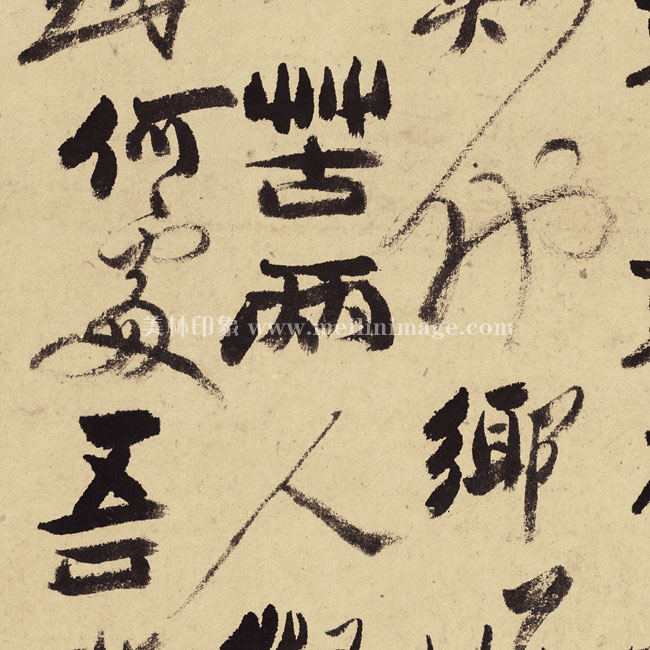 他鄉
苦兩人
何處吾
美林印象 www.meilinimage.com